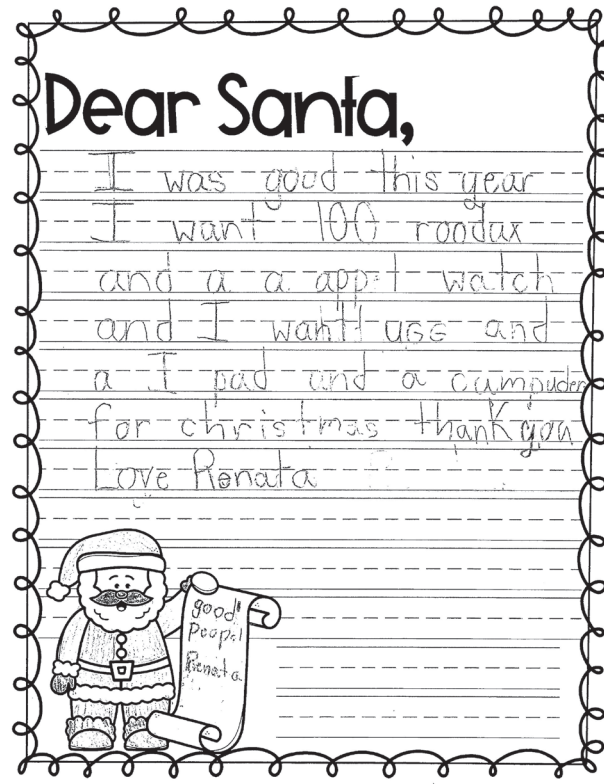 Dear Santa,
I was good this year
I want 100 roodux
and a a app:l watch
and I want uGG and
a I pad and a cumpuder
for christmas thank you
Love Renata
good!
Peop:l
Renata